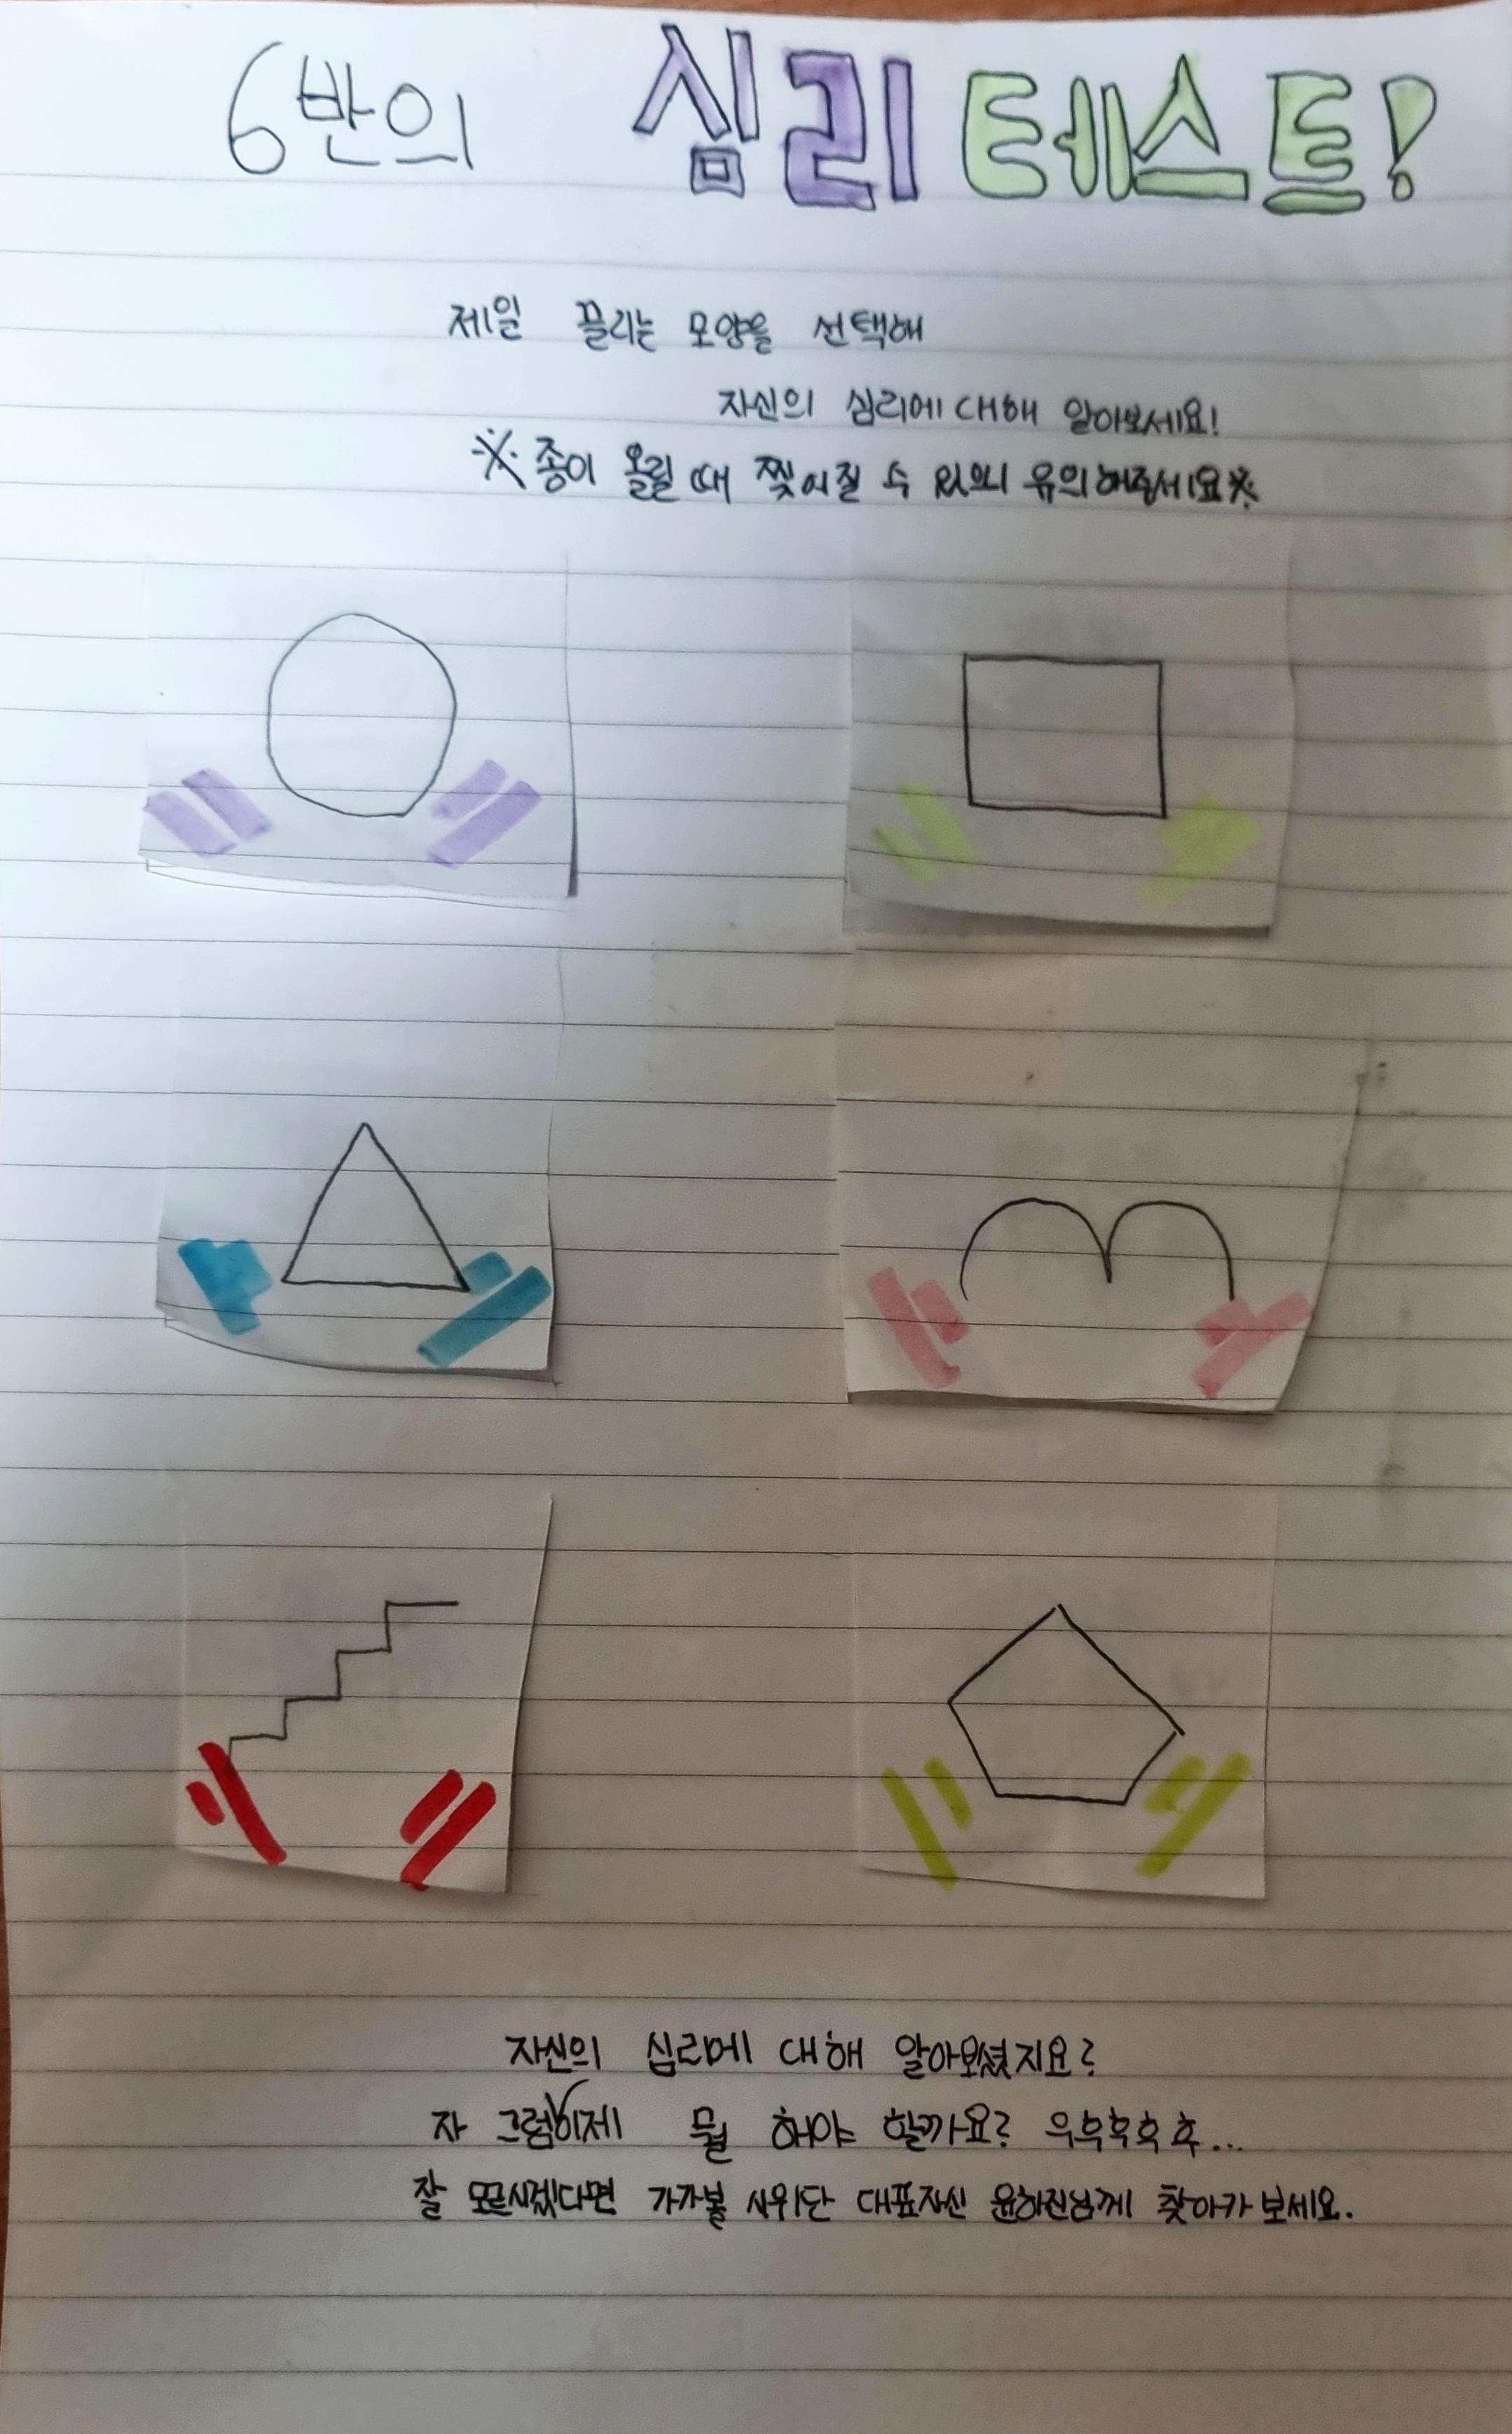 6반의 심리 테스트!
제일 끌리는 모양을 선택해
자신의 심리에 대해 알아보세요!
※종이 올릴 때 찢어질 수 있으니 유의해주세요※
자신의 심리에 대해 알아보셨지요?
자 그럼 이제 뭘 해야 할까요? 우후후후후...
잘 모르시겠다면 가가볼 시위단 대표자신 윤하진님께 찾아가 보세요.